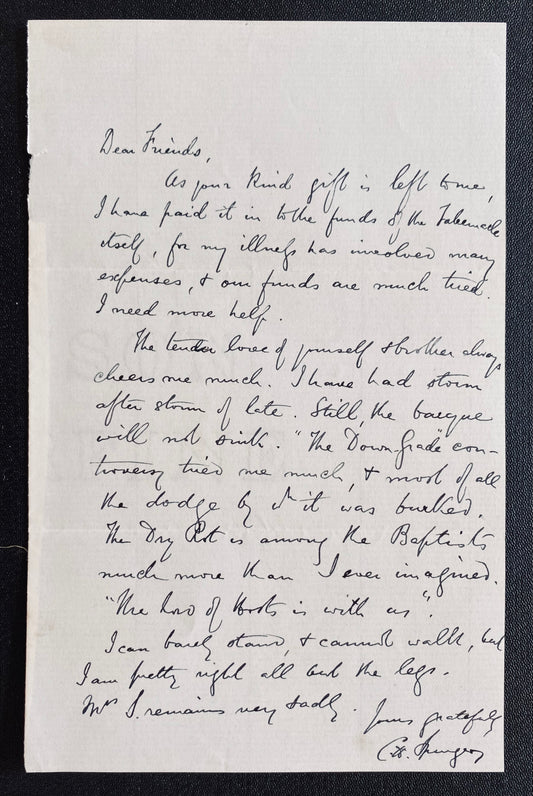 Dear Friends,
As your kind gift is left to me,
I have paid it in to the funds of the Tabernacle
itself, for my illness has involved many
expenses, & our funds are much tried.
I need more help.
The tender love of yourself & brother always
cheers me much. I have had storm
after storm of late. Still, the barque
will not sink. "The Down-Grade" con-
troversy tried me much, & most of all
the dodge by wh it was burked.
The Dry Rot is among the Baptists
much more than I ever imagined.
"The Lord of Hosts is with us".
I can barely stand, & cannot walk, but
I am pretty right all but the legs.
Mrs S. remains very sadly.
Yours gratefully
C. H. Spurgeon